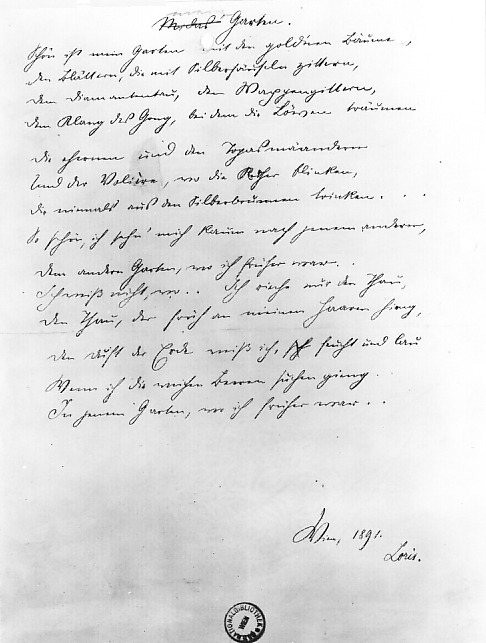 Midas' Garten.
Schön ist mein Garten mit den goldnen Bäumen,
den Blättern, die mit Silbersäuseln zittern,
dem Diamantenthau, den Wappengittern,
dem Klang des Gong, bei dem die Löwen träumen
die ehernen und den Topasmäandern
Und der Volière, wo die Reiher blinken,
die niemals aus den Silberbrunnen trinken. . .
So schön, ich sehn' mich kaum nach jenem andern,
dem andern Garten, wo ich früher war. .
Ich weiß nicht, wo. . Ich rieche nur den Thau,
den Thau, der früh an meinen Haaren hing,
den Duft der Erde weiß ich, feucht und lau
Wenn ich die weichen Beeren suchen gieng.
In jenem Garten, wo ich früher war. .
Wien, 1891.
Loris.
NATIONALBIBLIOTHEK
WIEN